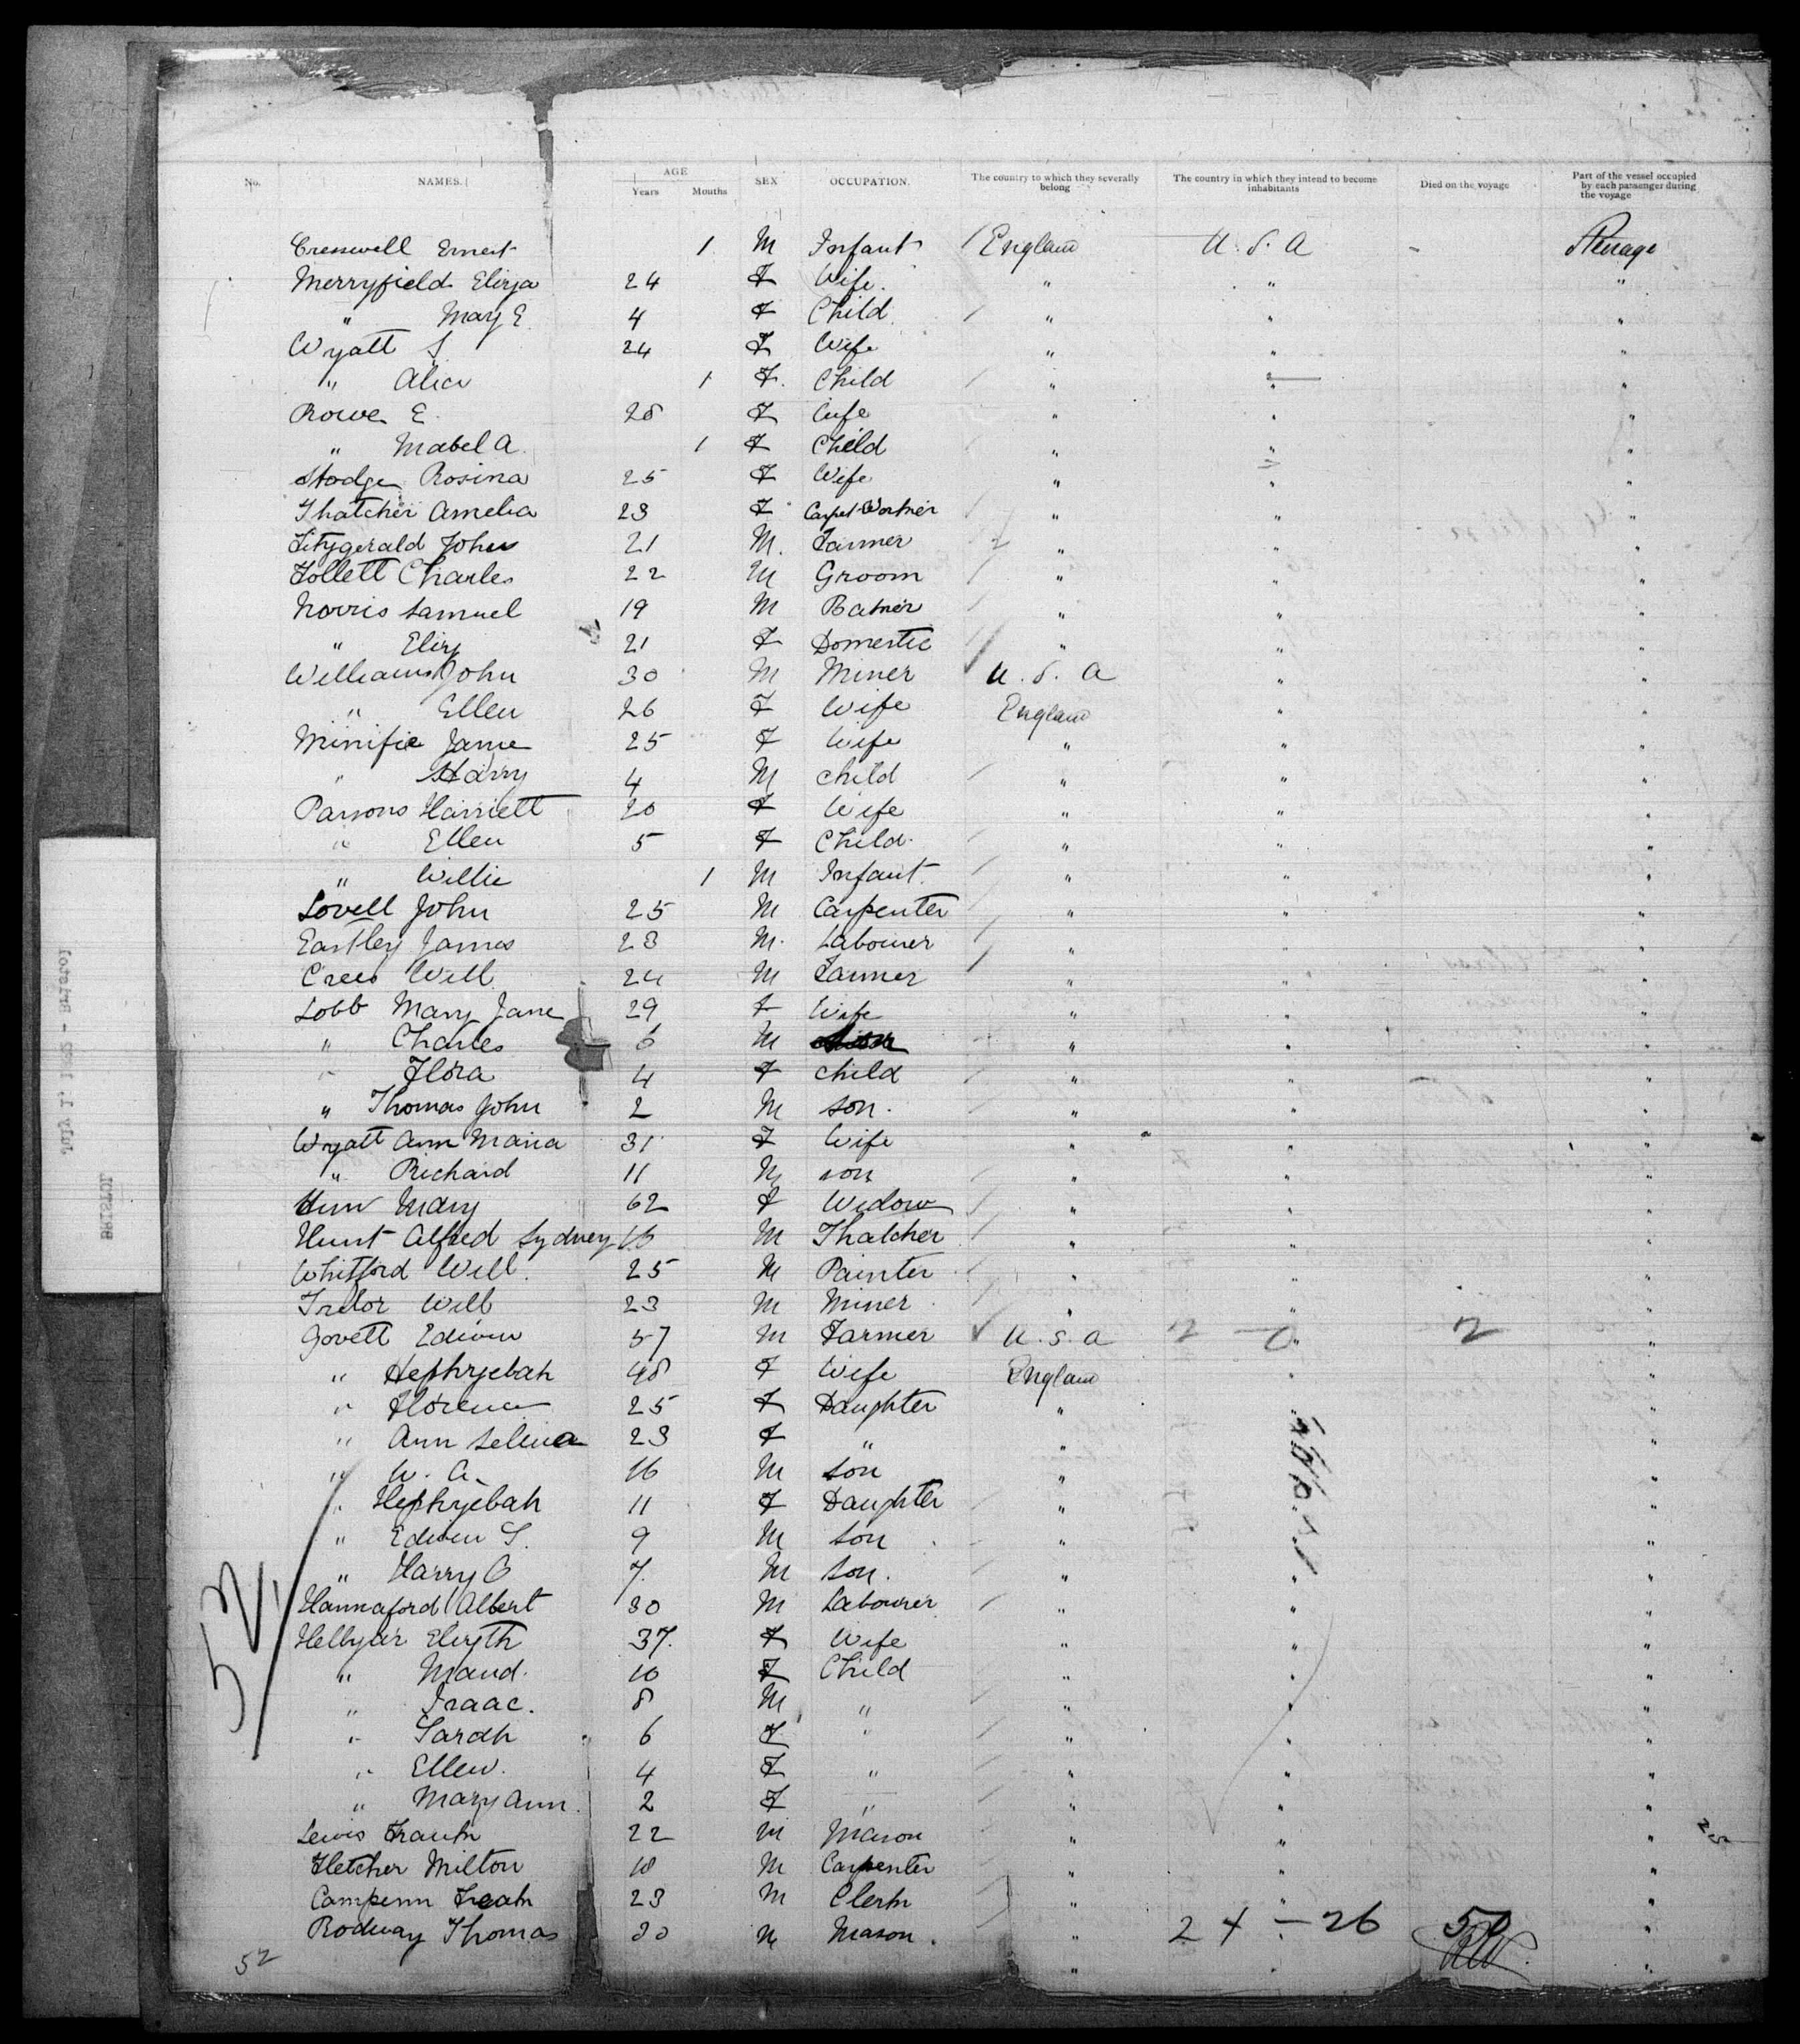 No. NAMES. AGE Years Months SEX OCCUPATION. The country to which they severally belong The country in which they intend to become inhabitants Died on the voyage Part of the vessel occupied by each passenger during the voyage
Cresswell Ernest 1 M Infant England U. S. A - Steerage
Merryfield Eliza 24 F Wife. " " "
" May E 4 F Child " " "
Wyatt S 24 F Wife " " "
" Alice 1 F. Child " " "
Rowe E. 28 F Wife " " "
" Mabel A. 1 F Child " " "
Hodge Rosina 25 F Wife " " "
Thatcher Amelia 23 F Carpet Worker " " "
Fitzgerald John 21 M. Farmer " " "
Follett Charles 22 M Groom " " "
Norris Samuel 19 M Baker " " "
" Eliz 21 F Domestic " " "
Williams John 30 M Miner U. S. A " "
" Ellen 26 F Wife England " "
Minifie Jane 25 F Wife " " "
" Harry 4 M child " " "
Parsons Harriett 20 F Wife " " "
" Ellen 5 F Child " " "
" Willie 1 M Infant. " " "
Lovell John 25 M Carpenter " " "
Eastley James 23 M. Labourer " " "
Crees Will 24 M Farmer " " "
Lobb Mary Jane 29 F Wife " " "
" Charles 6 M " " "
" Flora 4 F child " " "
" Thomas John 2 M son. " " "
Wyatt Ann Maria 31 F Wife " " "
" Richard 11 M son " " "
Mary 62 F Widow " " "
Hunt Alfred Sydney 16 M Thatcher " " "
Whitford Will. 25 M Painter " " "
Will 23 M Miner " " "
Govett Edwin 57 M Farmer U. S. A 2 - 0 " 2 "
" Hephzebah 48 F Wife England " "
" Florence 25 F Daughter " " "
" Ann Selina 23 F " " " "
" W. A. 16 M Son " " "
" Hephzebah 11 F Daughter " " "
" Edwin S. 9 M Son " " "
" Harry O 7. M Son. " " "
Hannaford Albert 30 M Labourer " " "
Hellyar Elizth 37. F Wife " " "
" Maud. 10 F Child " " "
" Isaac. 8 M " " " "
" Sarah 6 F " " " "
" Ellen. 4 F " " " "
" Mary Ann. 2 F " " " "
Lewis Frank 22 M Mason " " "
Fletcher Milton 18 M Carpenter " " "
23 M Clerk " " "
Rodway Thomas 30 M Mason. " 24 - 26 50 "
52 " " "
52/
25
BRISTOL